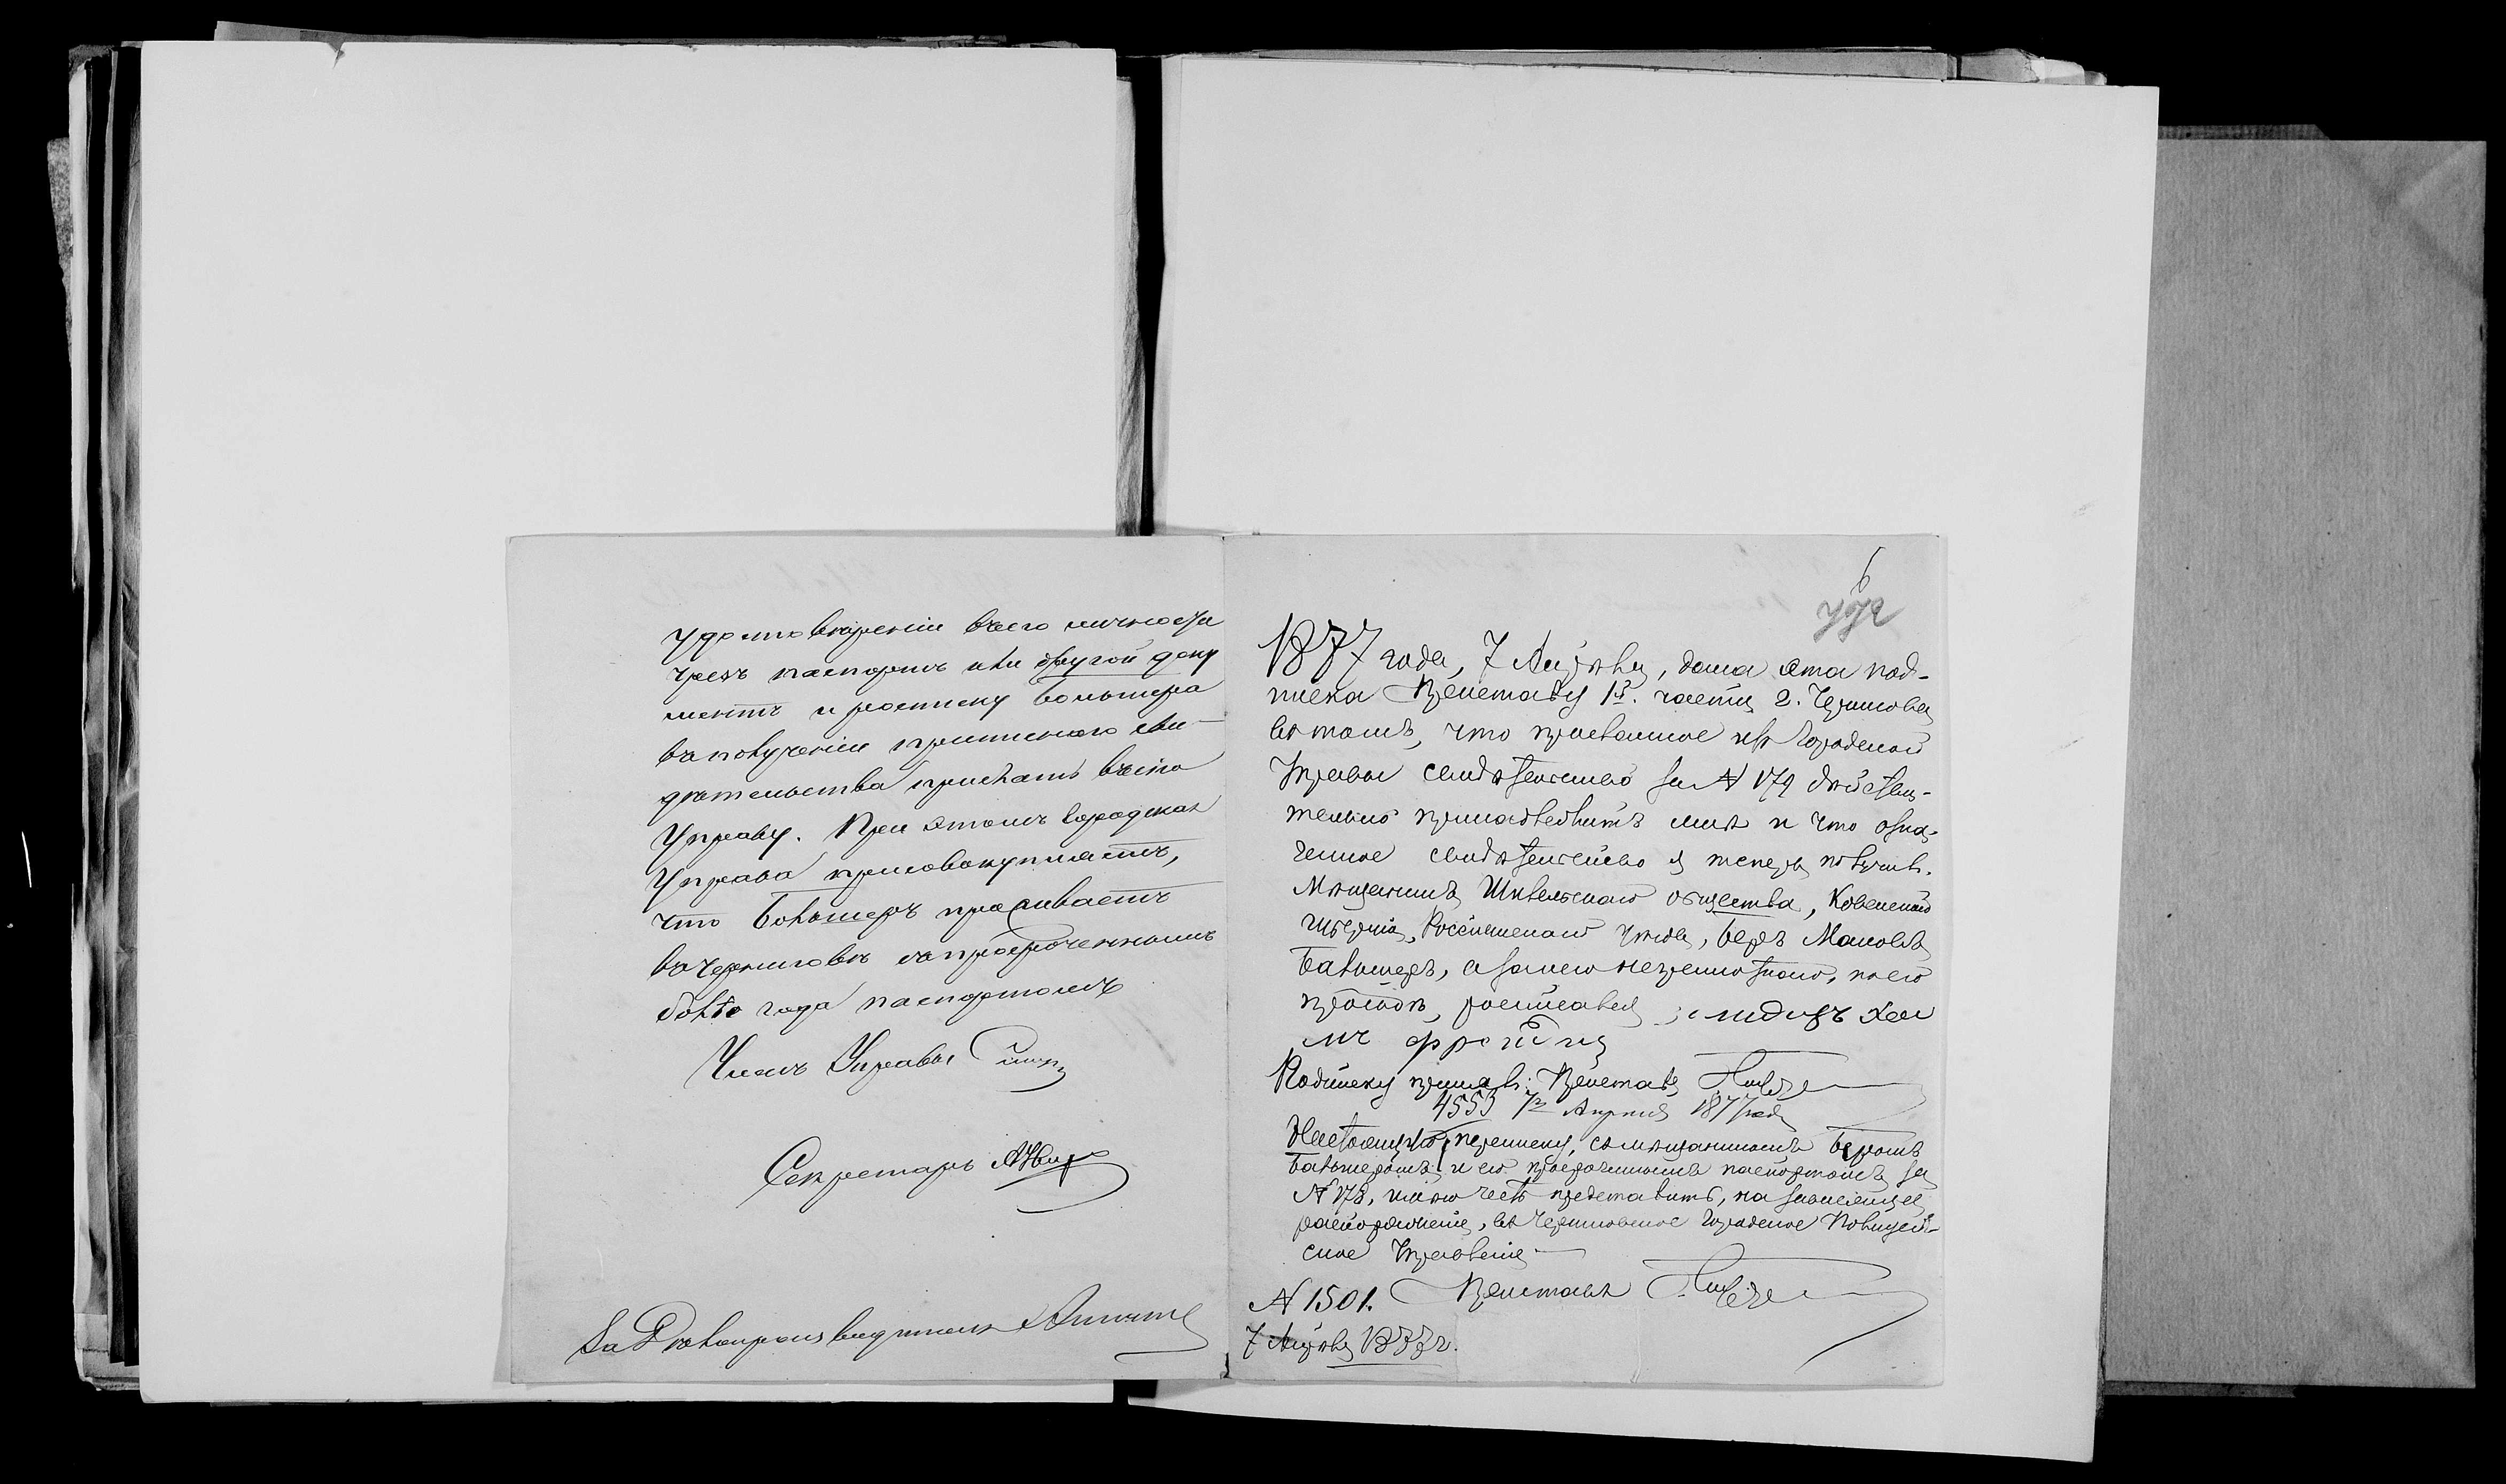 удостоверенiи въ его личности
чрезъ паспортъ или другой доку
ментъ и росписку Больтера
въ полученiи приписного сви-
дѣтельства прислать въ сiю
Управу. При этомъ Городская
Управа присовокупляетъ,
что Больтеръ проживаетъ
въ Черниговѣ съ просроченнымъ
болѣе года паспортомъ
Членъ Управы
Секретарь
За Дѣлопроизводителя
6
1877 года, 7 Апрѣля, дана эта под-
писка Приставу 1й. части г. Чернигова
въ томъ, что присланное изъ Городской
Управы свидѣтельство за № 179 дѣйстви-
тельно принадлежитъ мнѣ и что озна-
ченное свидѣтельство я теперь получилъ.
Мѣщанинъ Шавельскаго общества, Ковенской
губернiи, Россiенскаго уѣзда, Беръ
Больтеръ, а за него неграмотнаго, по его
просьбѣ, росписался
Подписку принялъ: Приставъ
4553 7го Апрѣля 1877 года
Настоящую переписку, съ мѣщаниномъ Беромъ
Больтеромъ и его просроченнымъ паспортомъ за
№ 178, имѣю честь представить, на зависящее
распоряженiе, въ Черниговское Городское Полицей-
ское Управленiе
№ 1501. Приставъ
7 Апрѣля 1877 г.